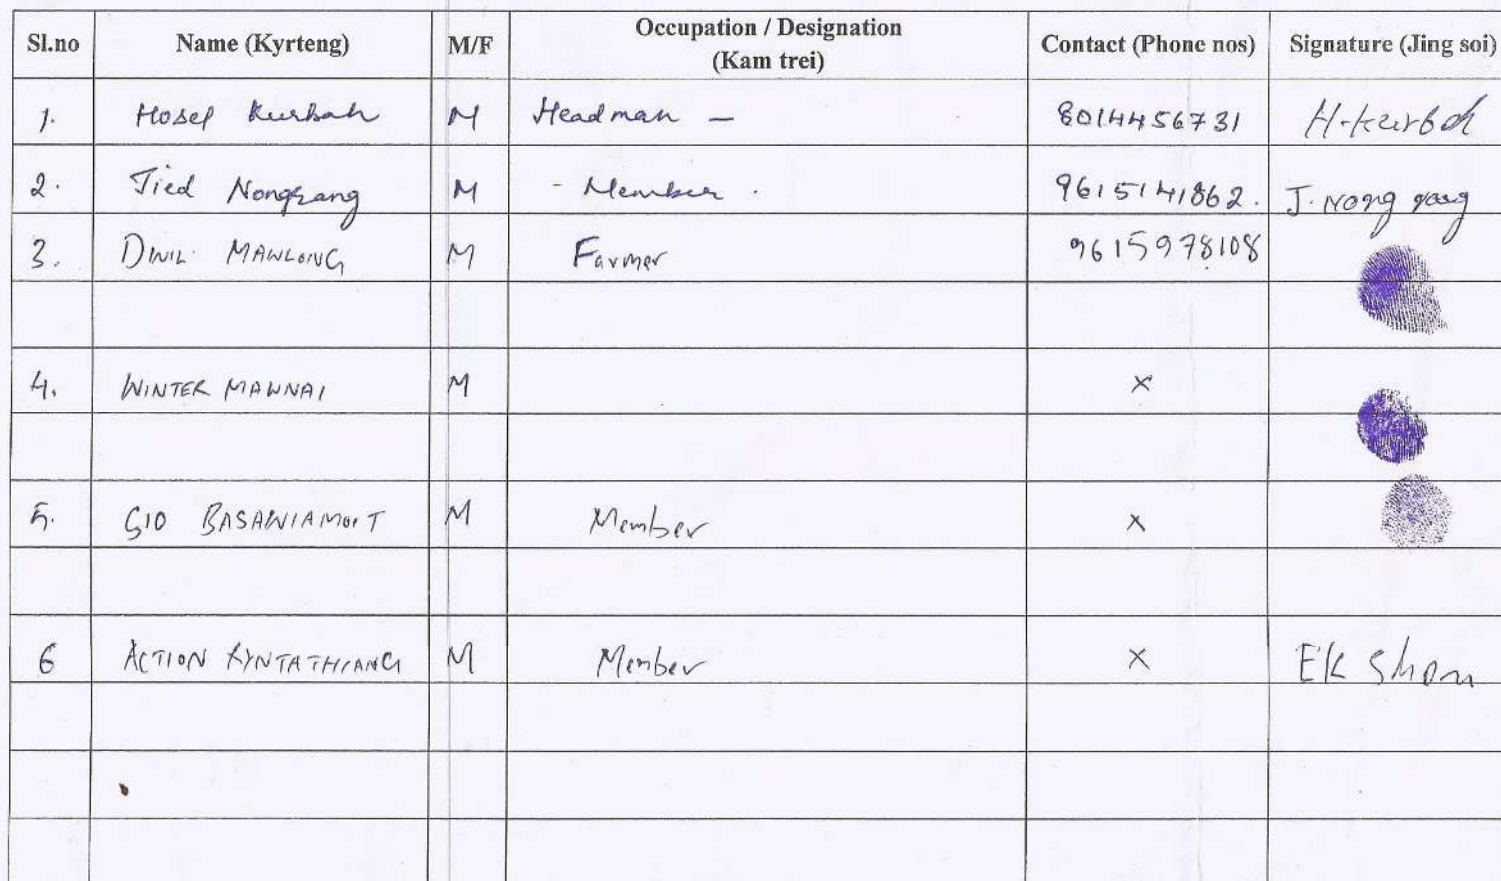 Sl.no Name (Kyrteng) M/F Occupation / Designation (Kam trei) Contact (Phone nos) Signature (Jing soi)
1. Hosef Kurbah M Headman — 8014456731 H-kurbah
2. Jied Nongrang M - Member . 9615141862. J. nong rang
3. DWIL MAWLONG M Farmer 9615978108
4. WINTER MAWNAI M x
5. GIO BASAWIAMOIT M Member x
6 ACTION KYNTATHIANG M Member x EK Shon